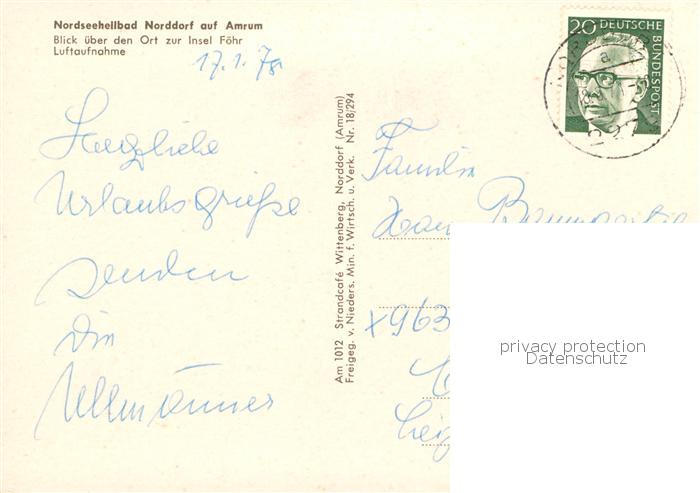 Nordseeheilbad Norddorf auf Amrum
Blick über den Ort zur Insel Föhr
Luftaufnahme
17.1.78
Herzliche
Urlaubsgrüße
senden
die
Ullmänner
Am 1012 Strandcafé Wittenberg, Norddorf (Amrum)
Freigeg. v. Nieders. Min. f. Wirtsch. u. Verk. Nr. 18/294
20 DEUTSCHE
BUNDESPOST
Familie
x963
privacy protection
Datenschutz